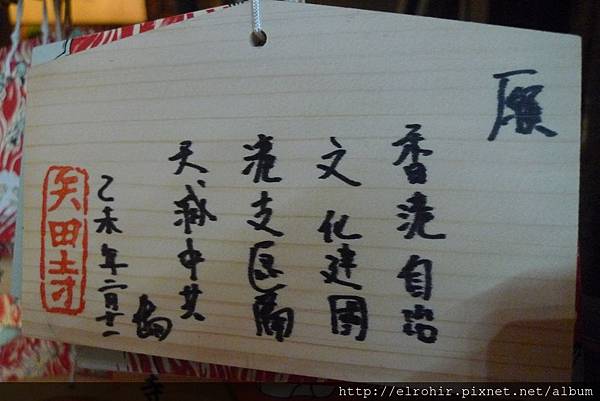 願
香港自治
文化建國
光支区蘭
天滅中共
乙未年二月十二
矢田寺
http://elrohir.pixnet.net/album